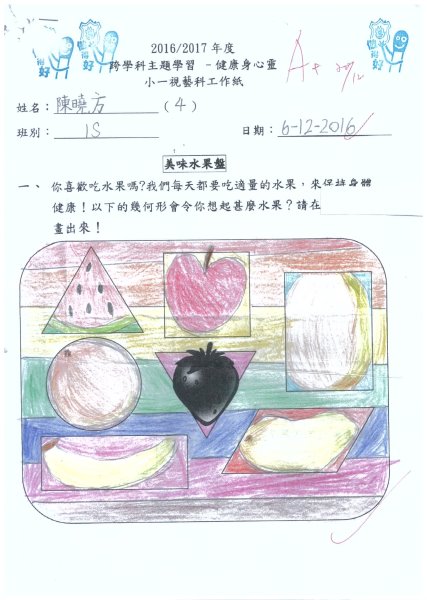 2016/2017 年度
跨學科主題學習 －健康身心靈
小一視藝科工作紙
A+
姓名： 陳曉方 （ 4 ）
班別： 1S 日期： 6-12-2016
美味水果盤
一、 你喜歡吃水果嗎？我們每天都要吃適量的水果，來保持身體
健康！以下的幾何形會令你想起甚麼水果？請在
畫出來！